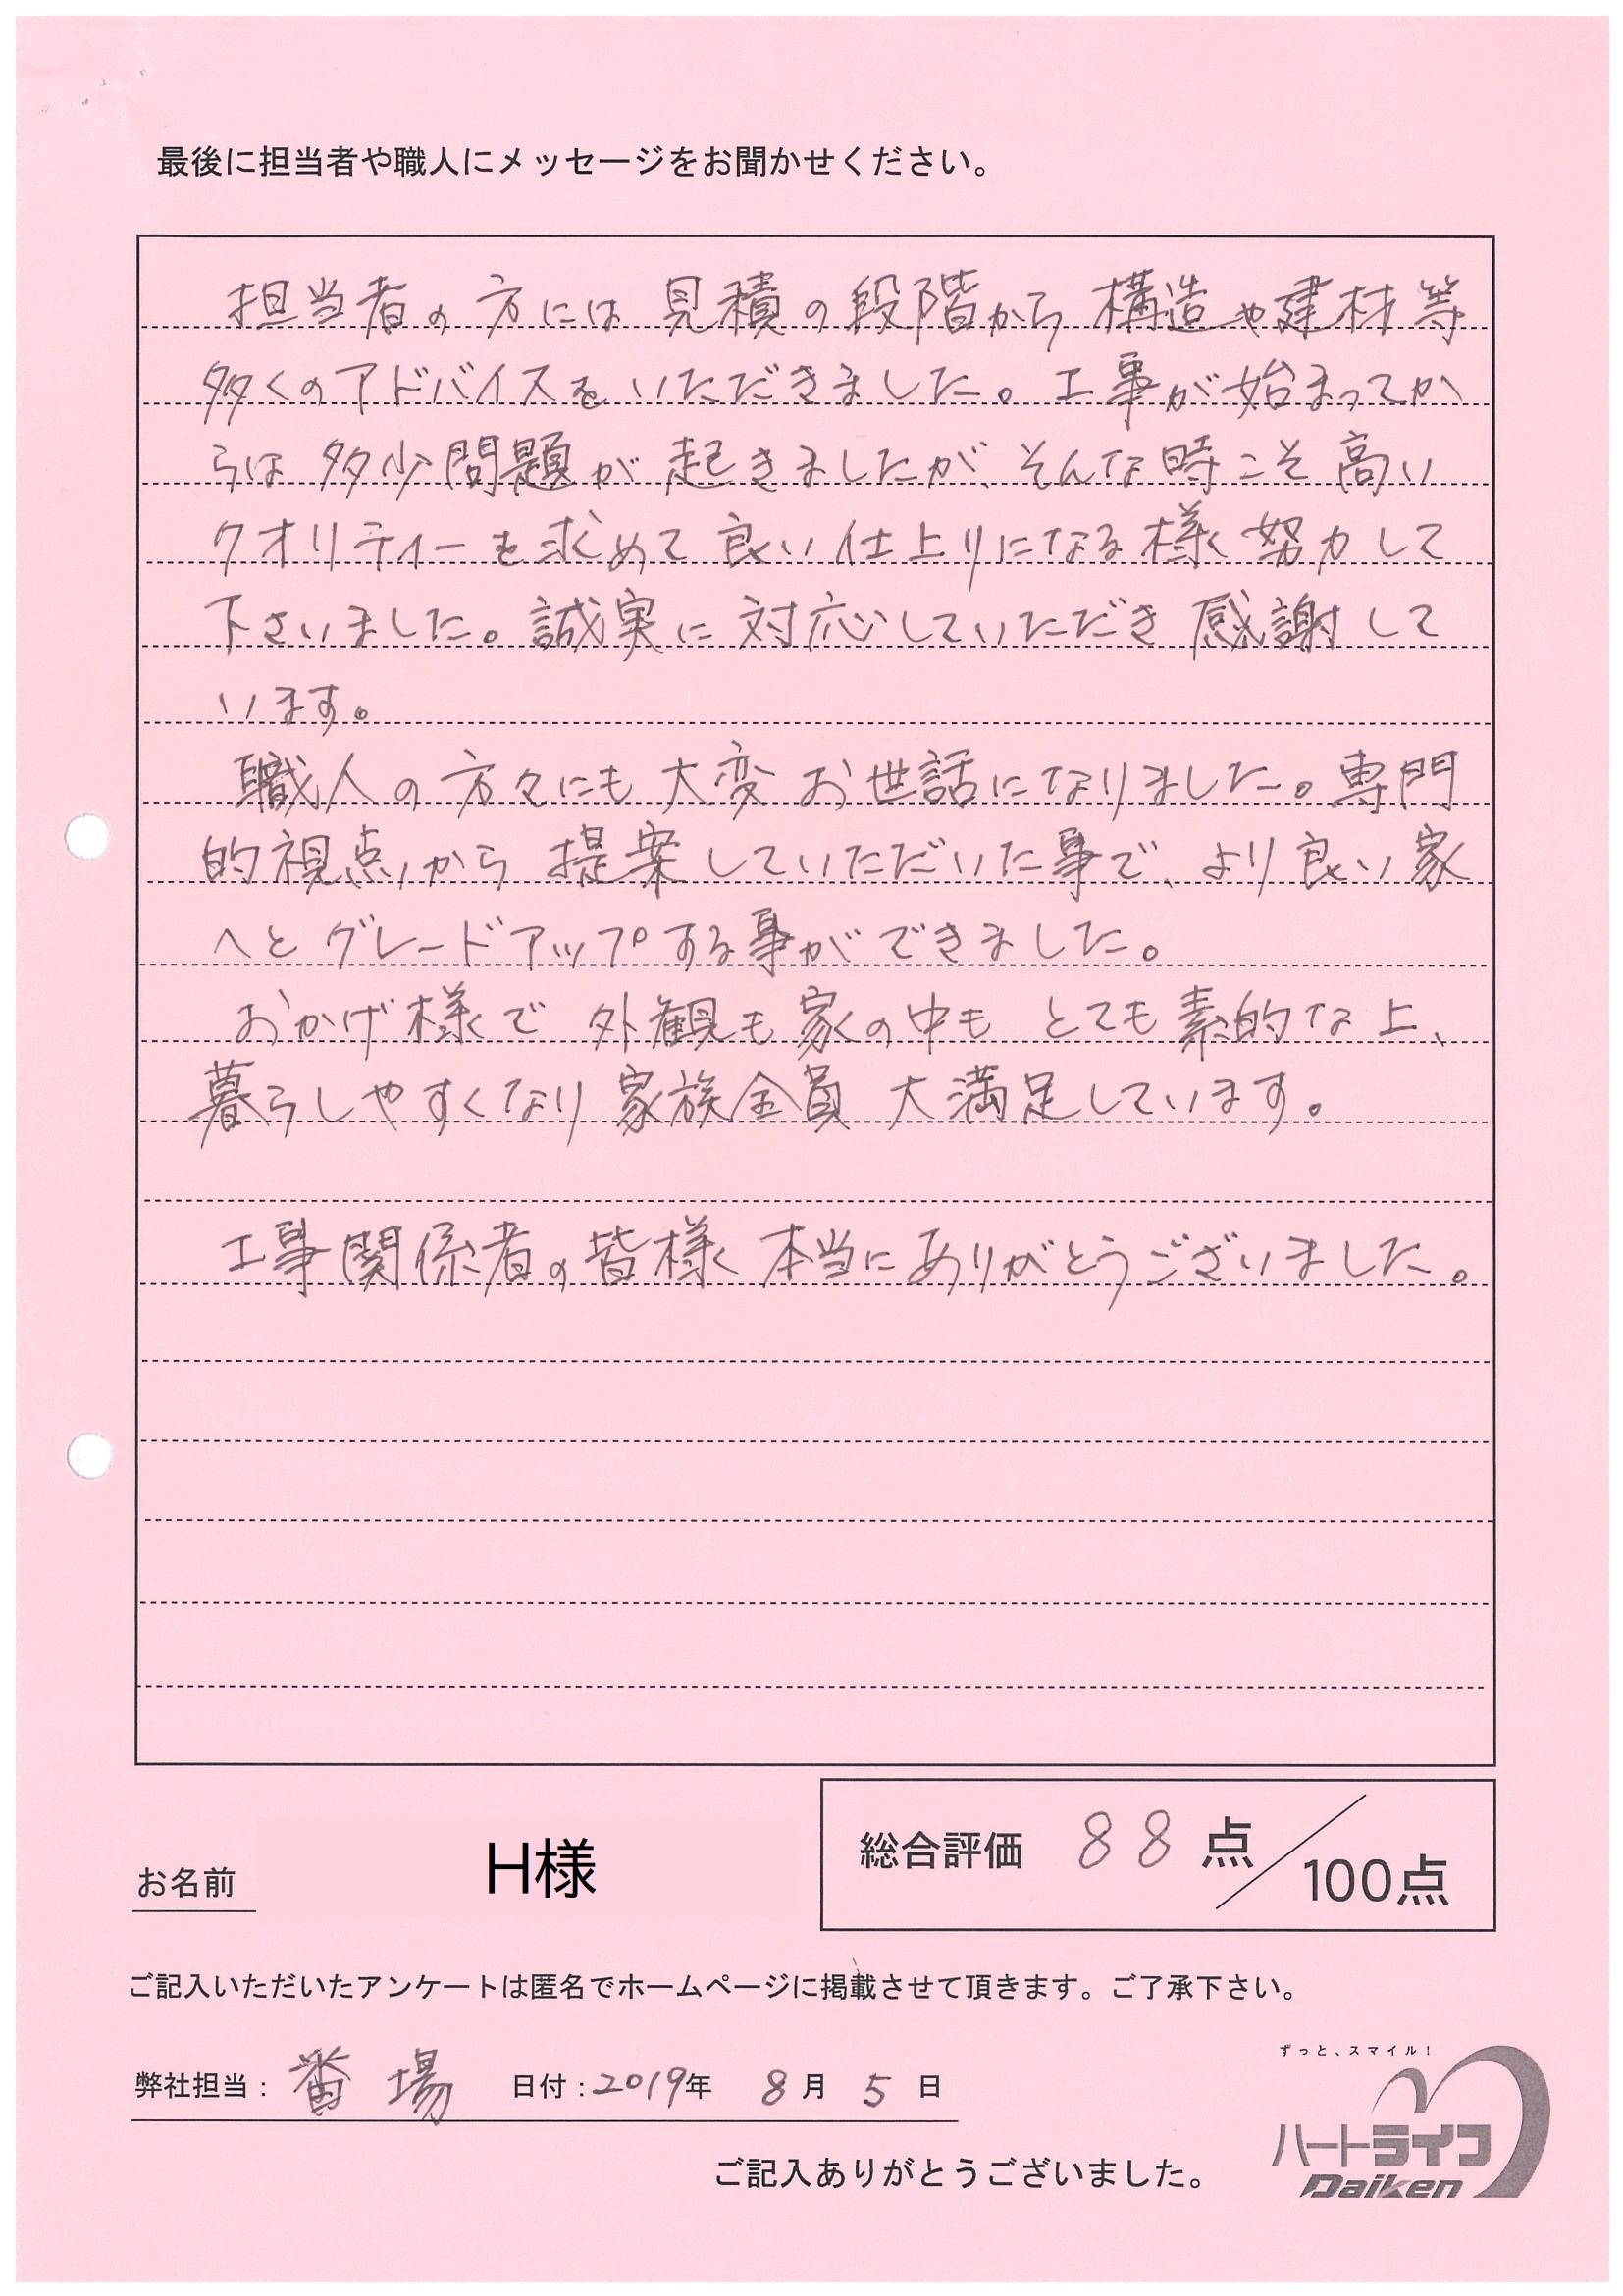 最後に担当者や職人にメッセージをお聞かせください。
担当者の方には 見積の段階から 構造や建材等
多くのアドバイスをいただきました。工事が始まってか
らは 多少問題が 起きましたが、そんな時こそ 高い
クオリティーを求めて 良い仕上りになる様 努力して
下さいました。誠実に 対応していただき 感謝して
います。
職人の方々にも 大変 お世話になりました。専門
的視点から 提案していただいた事で、より良い家
へと グレードアップする事ができました。
おかげ様で 外観も家の中も とても素的な上、
暮らしやすくなり 家族全員 大満足しています。
工事関係者の皆様 本当にありがとうございました。
お名前 H様
総合評価 88 点/100点
ご記入いただいたアンケートは匿名でホームページに掲載させて頂きます。ご了承下さい。
弊社担当：番場 日付：2019年 8月 5日
ずっと、スマイル！
ハートライフ
Daiken
ご記入ありがとうございました。